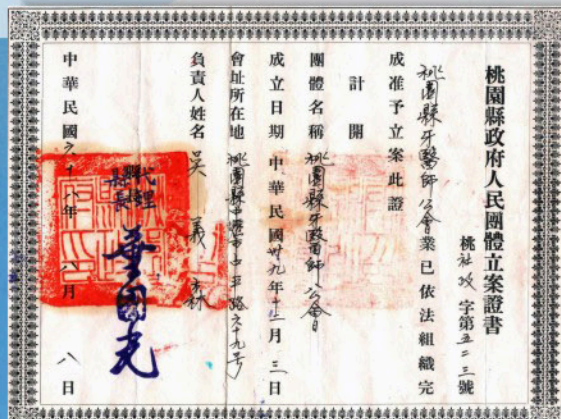 桃園縣政府人民團體立案證書
桃社政字第五二三號
桃園縣牙醫師公會業已依法組織完
成准予立案此證
計開
團體名稱 桃園縣牙醫師公會
成立日期 中華民國卅九年十二月三日
會址所在地 桃園縣中壢市中平路六十九号
負責人姓名 吳義森
代理縣長 董國光
中華民國六十八年八月八日